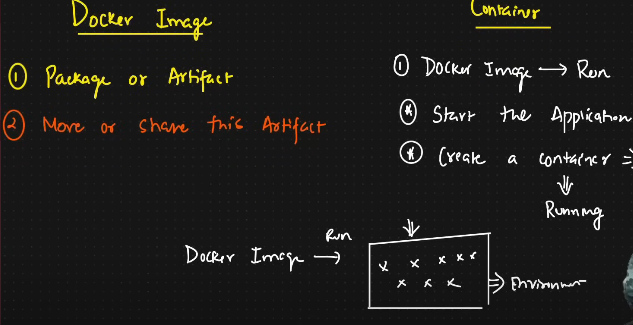 Docker Image
① Package or Artifact
② Move or share this Artifact
Container
① Docker Image → Run
* Start the Application
* Create a container ⇒
⇓
Running
Docker Image Run →
⇒ Environment